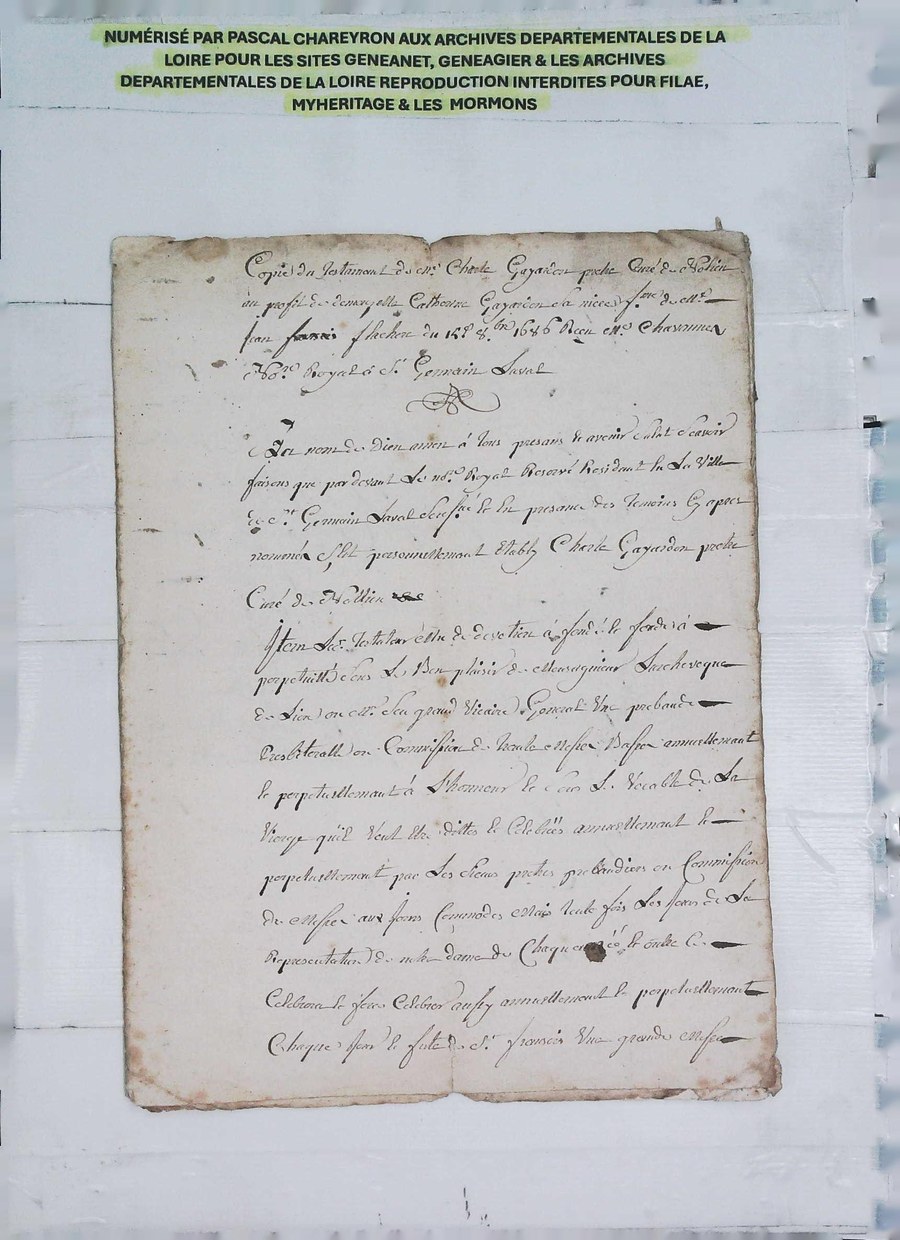 NUMÉRISÉ PAR PASCAL CHAREYRON AUX ARCHIVES DEPARTEMENTALES DE LA
LOIRE POUR LES SITES GENEANET, GENEAGIER & LES ARCHIVES
DEPARTEMENTALES DE LA LOIRE REPRODUCTION INTERDITES POUR FILAE,
MYHERITAGE & LES MORMONS
Copie du Testament de Mre Charle Gayardon pretre Curé de
au profit de demoyselle Catherine Gayardon sa niece fme de Mre
Jean flachere du 15e 8bre 1686 Recu Me
Nore Royal a St Germain Laval
Au nom de Dieu amen á tous presans et avenir salut scavoir
faisons que pardevant Le nore Royal Reservé Residant en La Ville
de St Germain Laval et en presance des Temoins Cyapres
nommés S'est personnellement Etably Charle Gayardon pretre
Curé de
Item Ledt Testateur de devotion á fondé et fonde á
perpetuitté sous Le Bon plaisir de Monseignieur Larcheveque
de Lion ou Mr Son grand Vicaire General Une prebande
Presbiteralle ou Commission de Messe Basse annuellement
et perpetuellemant á L'honneur et sous Le Vocable de La
Vierge qu'il Veut Etre dittes et Celebrées annuellement et
perpetuellement par Les sieurs pretres prebandiers ou Commission
de Messe aux Jours Commodes Mais toute fois Les Jours de La
Representation de notre dame de Chaque et outre Ce
Celebrera et fera Celebrer aussy annuellement et perpetuellemant
Chaque Jour et fete de St francois Une grande Messe